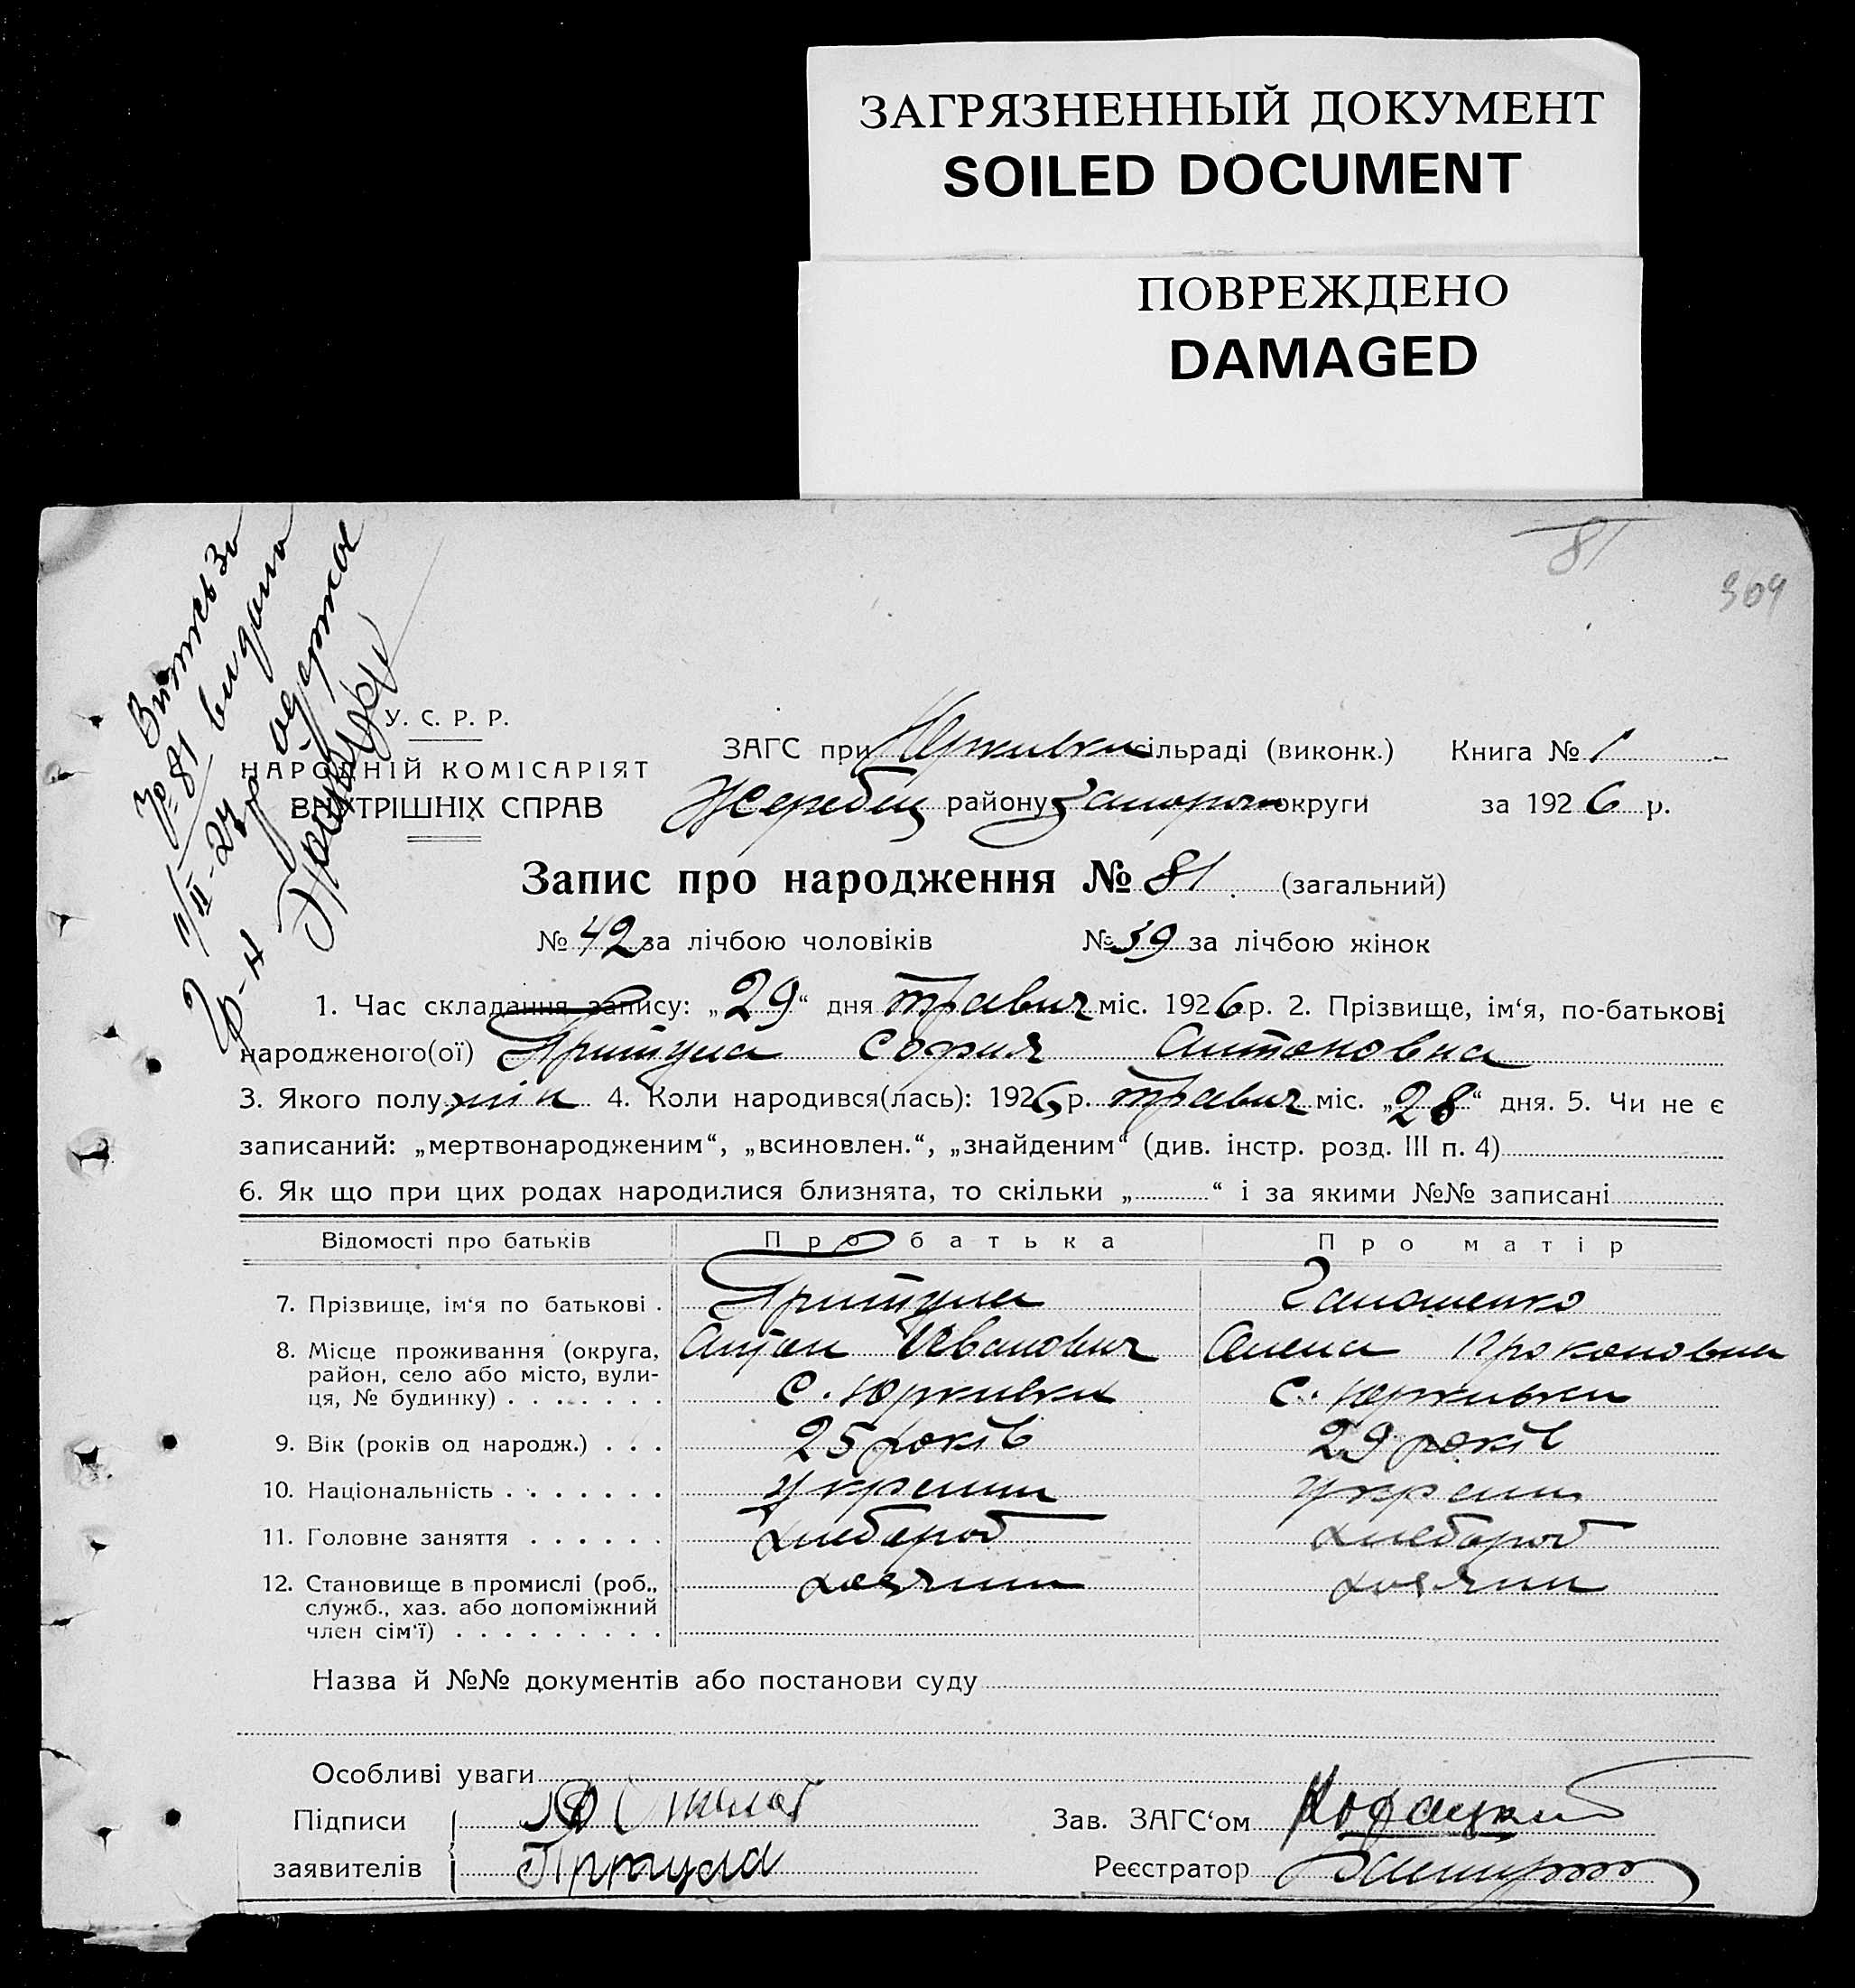 ЗАГРЯЗНЕННЫЙ ДОКУМЕНТ
SOILED DOCUMENT
ПОВРЕЖДЕНО
DAMAGED
81
309
Витяг за
№ 81 видано
У. С. Р. Р.
НАРОДНІЙ КОМІСАРІЯТ
ВНУТРІШНІХ СПРАВ
ЗАГС при Юркивки сільраді (виконк.) Книга № 1
Жеребец району Запорож округи за 1926 р.
Запис про народження № 81 (загальний)
№ 42 за лічбою чоловіків № 39 за лічбою жінок
1. Час складання запису: „29“ дня травня міс. 1926 р. 2. Прізвище, ім‘я, по-батькові
народженого(ої) Притула София Антоновна
3. Якого полу жін 4. Коли народився(лась): 1926 р. травня міс. „28“ дня. 5. Чи не є
записаний: „мертвонародженим“, „всиновлен.“, „знайденим“ (див. інстр. розд. III п. 4)
6. Як що при цих родах народилися близнята, то скільки „ “ і за якими №№ записані
Відомості про батьків Про батька Про матір
7. Прізвище, ім‘я по батькові . Притула Галошенко
8. Місце проживання (округа, Антон Иванович Олена Прокоповна
район, село або місто, вули-
ця, № будинку) . . . . . . . с. Юркивки с. Юркивки
9. Вік (років од народж.) . . . 25 років 29 років
10. Національність . . . . . . . украин украин
11. Головне заняття . . . . . . хлебороб хлебороб
12. Становище в промислі (роб., хозяин хозяин
служб., хаз. або допоміжний
член сім‘ї) . . . . . . . . .
Назва й №№ документів або постанови суду
Особливі уваги
Підписи Зав. ЗАГС‘ом
заявителів Притула Реєстратор